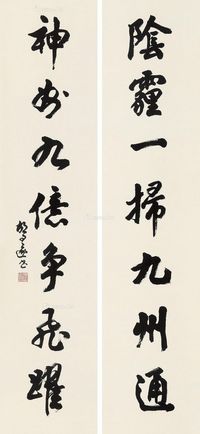 陰霾一掃九州通
神州九億争飛躍